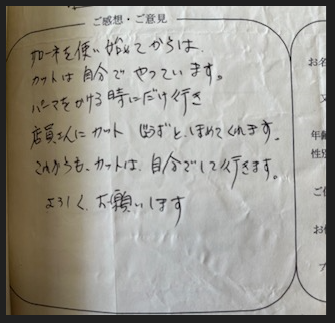 ご感想・ご意見
カローネを使い始めてからは、
カットは自分でやっています。
パーマをかける時にだけ行き
店員さんにカット じょうずと、ほめてくれます。
これからも、カットは、自分でして行きます。
よろしく、お願いします
お名
年齢
性別